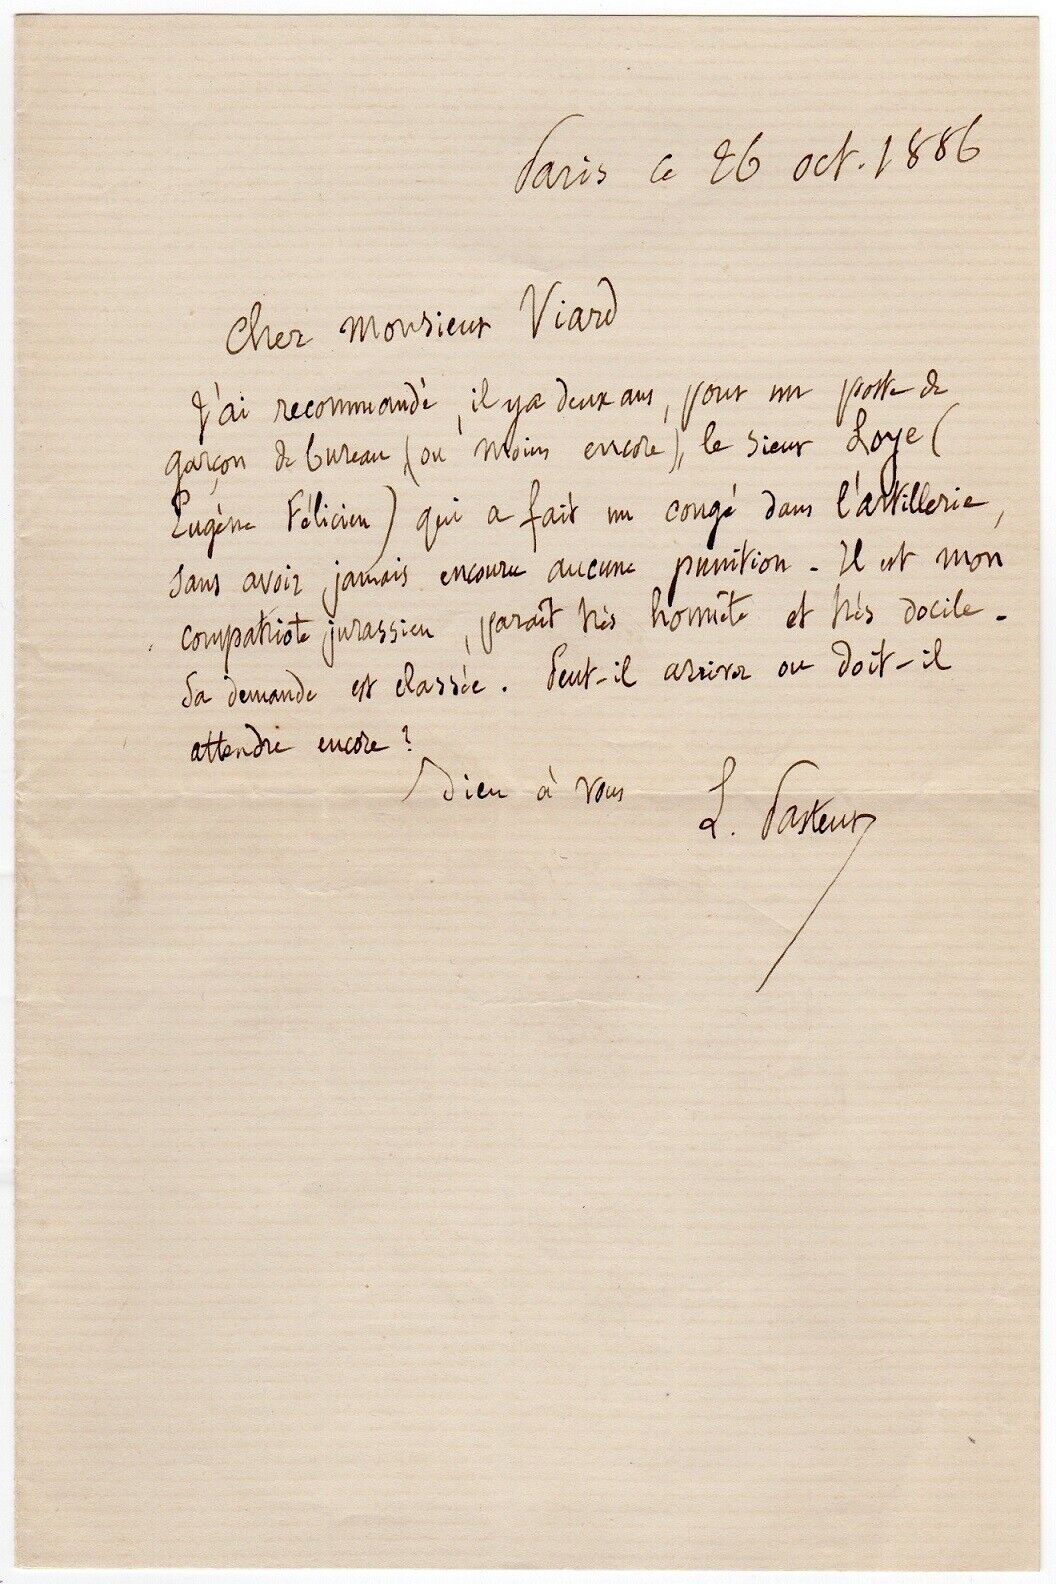 Paris ce 26 oct. 1886
Cher Monsieur Viard
J'ai recommandé, il y a deux ans, pour un poste de
garçon de bureau (ou moins encore), le sieur Loye (
Eugène Félicien) qui a fait un congé dans l'artillerie,
sans avoir jamais encouru aucune punition. Il est mon
compatriote jurassien, paraît très honnête et très docile.
Sa demande est classée. Peut-il arriver ou doit-il
attendre encore?
bien à vous L. Pasteur